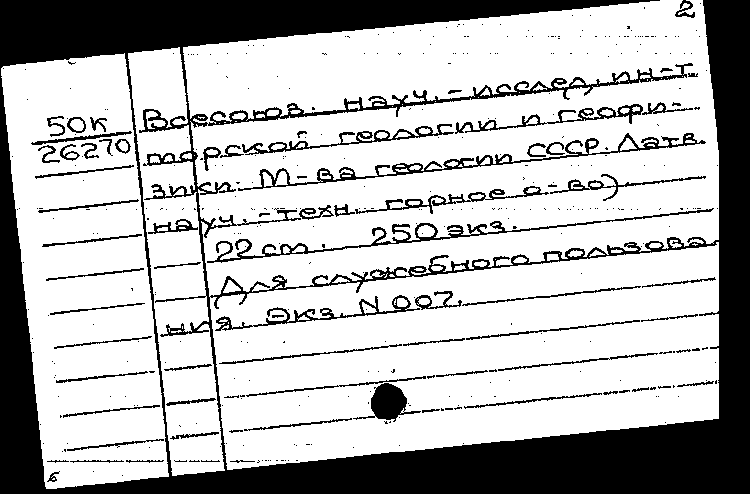 2
50К
26270
Всесоюз. науч.-исслед. ин-т
морской геологии и геофи-
зики. М-ва геологии СССР. Латв.
науч.-техн. горное о-во)
22 cm. 250 экз.
Для служебного пользова-
ния. Экз. N 007.
б